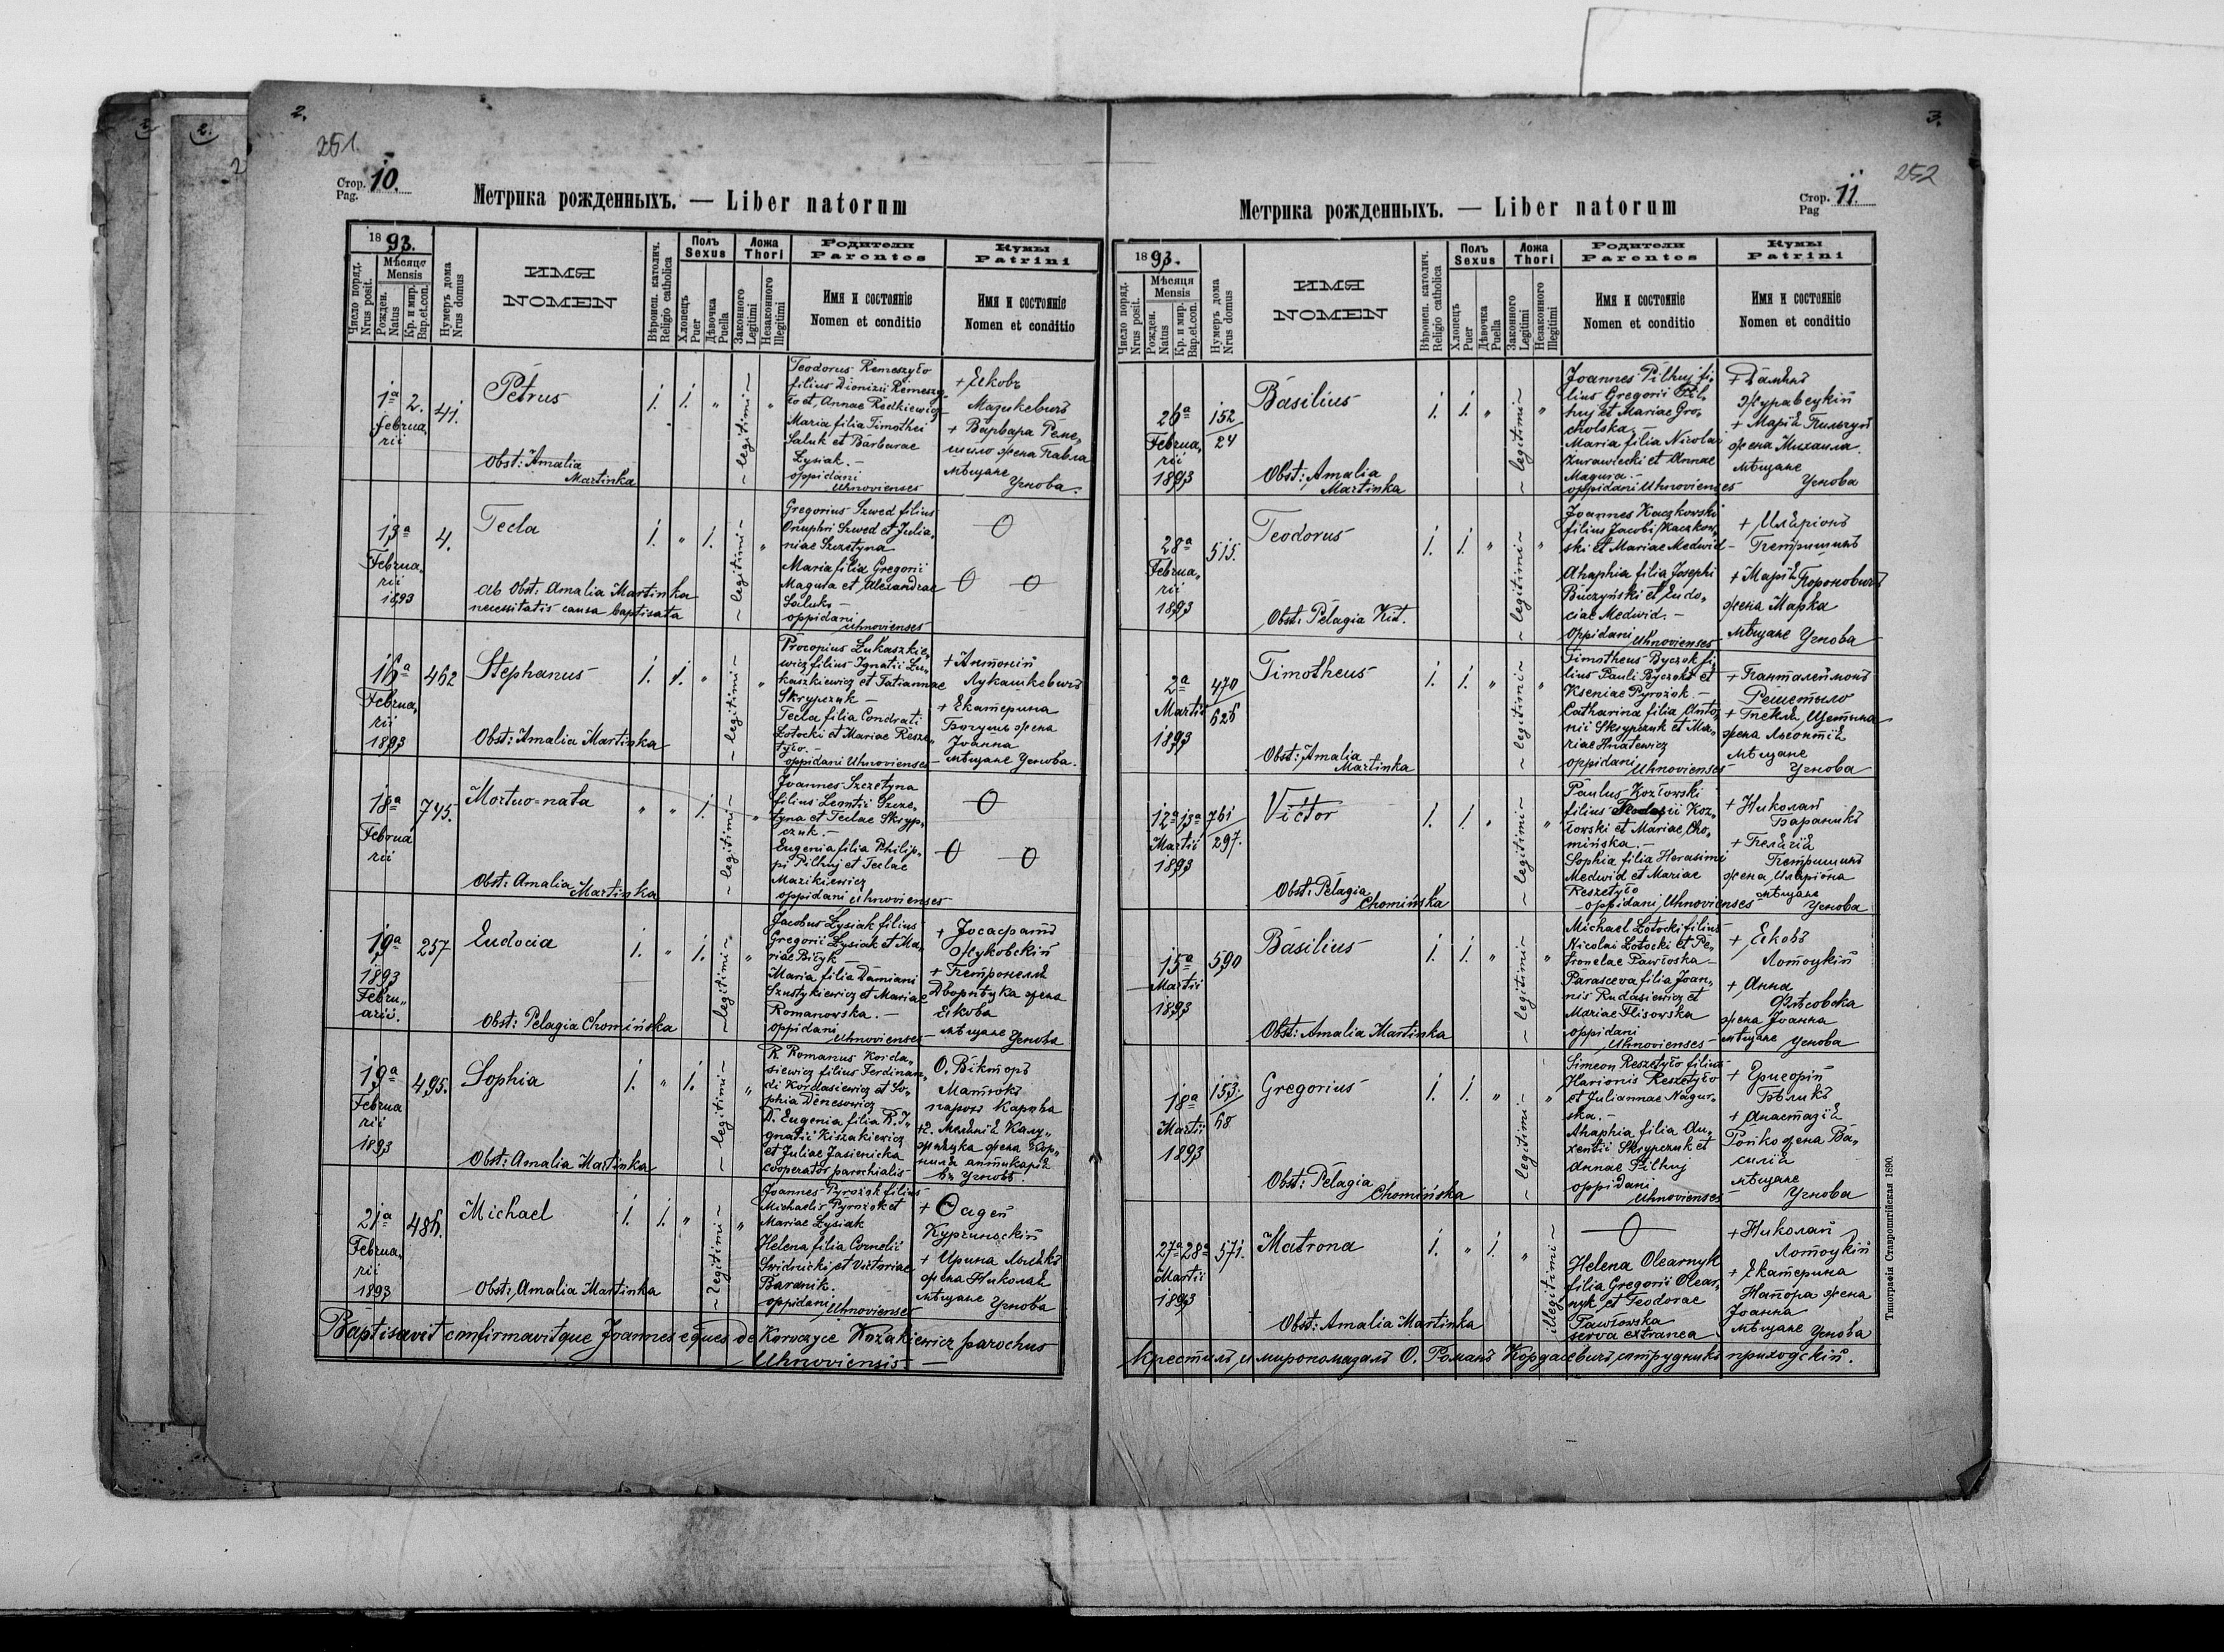 2.
251.
Стор. 10.
Pag.
Метрика рожденныхъ. — Liber natorum
1893.
Число поряд.
Nrus posit.
Мѣсяця
Mensis
Рожден.
Natus
Кр. и мир.
Bap.et.con.
Нумеръ дома
Nrus domus
ИМЯ
NOMEN
Вѣроисп. католич.
Religio catholica
Полъ
Sexus
Хлопецъ
Puer
Дѣвочка
Puella
Ложа
Thori
Законного
Legitimi
Незаконного
Illegitimi
Родители
Parentes
Имя и состояніе
Nomen et conditio
Кумы
Patrini
Имя и состояніе
Nomen et conditio
1ª 2.
Februa„
rii
41.
Petrus
Obst: Amalia
Martinka
1. 1. „
~ legitimi ~
„
Teodorus Remeszyło
filius Dionizii Remeszy„
ło et Annae Redkiewicz
Maria filia Timothei
Saluk et Barbarae
Łysiak. –
oppidani
Uhnovienses
+ Яковъ
Мазикевичъ
+ Варвара Реме„
шило жена Павла
мѣщане
Угнова.
13ª
Februa„
rii
1893
4.
Tecla
ab Obst: Amalia Martinka
necessitatis causa baptisata
1. „ 1.
~ legitimi ~
„
Gregorius Szwed filius
Onuphri Szwed et Julia„
niae Szczetyna
Maria filia Gregorii
Magura et Alexandrae
Saluk –
oppidani
Uhnovienses
16ª
Februa„
rii
1893
462
Stephanus
Obst: Amalia Martinka
1. 1. „
~ legitimi ~
„
Procopius Lukaszkie„
wicz filius Ignatii Lu„
kaszkiewicz et Tatiannae
Skrypczuk –
Tecla filia Condrati
Łotocki et Mariae Resze„
tyło. –
oppidani Uhnovienses –
+ Антоній
Лукашкевичъ
+ Екатерина
Богушъ жена
Іоанна
мѣщане Угнова.
18ª
Februa
rii
745.
Mortuo=nata
Obst: Amalia Martinka
„ „ 1.
~ legitimi ~
„
Joannes Szczetyna
filius Leontii Szcze„
tyna et Teclae Skryp„
czuk. –
Eugenia filia Philip„
pi Pilhuj et Teclae
Mazikiewicz
oppidani Uhnovienses
19ª
1893
Febru„
arii.
257
Eudocia
Obst: Pelagia Chomińska
1. „ 1.
~ legitimi ~
„
Jacobus Łysiak filius
Gregorii Łysiak et Ma„
riae Biłyk –
Maria filia Damiani
Szustykiewicz et Mariae
Romanowska. –
oppidani
Uhnovienses –
+ Іосафатъ
Жуковскій
+ Петронелля
Дворнѣцка жена
Якова
мѣщане Угнова
19ª
Februa
rii
1893
495.
Sophia
Obst: Amalia Martinka
1. „ 1.
~ legitimi ~
„
R. Romanus Korda„
siewicz filius Ferdinan„
di Kordasiewicz et So„
phia Denesowicz
D. Eugenia filia R. I„
gnatii Kiszakiewicz
et Juliae Jasienicka
cooperator parochialis
О. Вікторъ
Матюкъ
парохъ Карова
въ Угновѣ.
21ª
Februa„
rii
1893
486.
Michael
Obst: Amalia Martinka
1. 1. „
~ legitimi ~
„
Joannes Pyrożok filius
Michaelis Pyrożok et
Mariae Łysiak
Helena filia Cornelii
Swidnicki et Victoriae
Baranik.
oppidani
Uhnovienses
+ Ѳадей
+ Ирина
жена Николая
мѣщане Угнова
Baptisavit confirmavitque Joannes eques de Koroczyce Kozakiewicz parochus
Uhnoviensis –
3.
252
Стор. 11.
Pag
Метрика рожденныхъ. — Liber natorum
1893.
Число поряд.
Nrus posit.
Мѣсяця
Mensis
Рожден.
Natus
Кр. и мир.
Bap.et.con.
Нумеръ дома
Nrus domus
ИМЯ
NOMEN
Вѣроисп. католич.
Religio catholica
Полъ
Sexus
Хлопецъ
Puer
Дѣвочка
Puella
Ложа
Thori
Законного
Legitimi
Незаконного
Illegitimi
Родители
Parentes
Имя и состояніе
Nomen et conditio
Кумы
Patrini
Имя и состояніе
Nomen et conditio
26ª
Februa„
rii
1893
152
24
Basilius
Obst: Amalia
Martinka
1. 1. „
~ legitimi ~
„
Joannes Pilhuj fi„
lius Gregorii Pil„
huj et Mariae Gro„
cholska –
Maria filia Nicolai
Żurawiecki et Annae
Magura –
oppidani Uhnovienses
+ Даміанъ
Журавецкій
+ Марія Пильгуй
жена Михаила.
мѣщане
Угнова
28ª
Februa„
rii
1893
515.
Teodorus
Obst: Pelagia Kit.
1. 1. „
~ legitimi ~
„
Joannes Kaczkowski
filius Jacobi Kaczkow„
ski et Mariae Medwid –
Ahaphia filia Josephi
Buczyński et Eudo„
ciae Medwid. –
oppidani
Uhnovienses
+ Иляріонъ
Петришинъ
+ Марія Вороновичъ
жена Марка
мѣщане Угнова
2ª
Martii
1893
470
626
Timotheus
Obst: Amalia
Martinka
1. 1. „
~ legitimi ~
„
Timotheus Byczok fi„
lius Pauli Byczok et
Kseniae Pyrożok. –
Catharina filia Anto„
nii Skrypczuk et Ma„
riae Hnatewicz
oppidani
Uhnovienses
+ Панталеймонъ
Решетыло
+ Текля Щетина
жена Леонтія
мѣщане
Угнова
12ª 13ª
Martii
1893
761
297.
Victor
Obst: Pelagia
Chomińska
1. 1. „
~ legitimi ~
„
Paulus Kozłowski
filius Teodozii Koz„
łowski et Mariae Cho„
mińska. –
Sophia filia Herasimi
Medwid et Mariae
Reszetyło
– oppidani Uhnovienses
+ Николай
Бараникъ
+ Пелагія
Петришинъ
жена Иляріона
мѣщане
Угнова
15ª
Martii
1893
590
Basilius
Obst: Amalia Martinka
1. 1. „
~ legitimi ~
„
Michael Łotocki filius
Nicolai Łotocki et Pe„
tronelae Pawłoska –
Parasceva filia Joan„
nis Rudasiewicz et
Mariae Flisowska
oppidani
Uhnovienses –
+ Яковъ
Лотоцкій
+ Анна
Флѣсовска
жена Іоанна
мѣщане Угнова
18ª
Martii
1893
153.
68
Gregorius
Obst: Pelagia
Chomińska
1. 1. „
~ legitimi ~
„
Simeon Reszetyło filius
Harionis Reszetyło
et Juliannae Nagur„
ska. –
Ahaphia filia Au„
xentii Skrypczuk et
Annae Pilhuj
oppidani
Uhnovienses
+ Григорій
Бѣликъ
+ Анастазія
Ройко жена Ва„
силія
мѣщане
Угнова
27ª 28ª
Martii
1893
571.
Matrona
Obst: Amalia Martinka
1. „ 1.
„
illegitimi ~
Helena Olearnyk
filia Gregorii Olear„
nyk et Teodorae
Pawłowska
serva extranea
+ Николай
Лотоцкій
+ Екатерина
Напора жена
Іоанна
мѣщане Угнова
Крестилъ и миропомазалъ О. Романъ Кордасевичъ сотрудникъ приходскій.
Типографія Ставропигійская 1890.